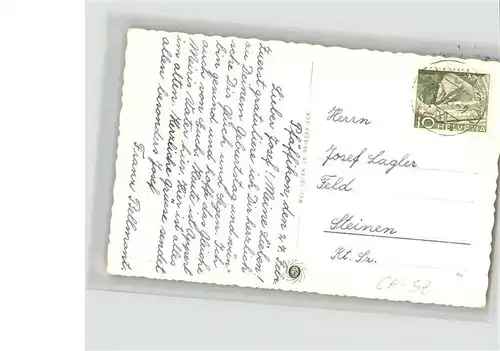 Pfäffikon, den 24. Febr.
Lieber Josef! Meine Lieben!
Zuerst gratuliere ich Dir herzlich
zu Deinem Geburtstag und wün=
sche Dir Glück und Segen. Ich
bin gesund und hoffe das Gleiche
auch von Euch. Heute ist
Meiris Vater hier. Hier ist alles
im alten. Herzliche Grüsse sendet
allen besonders Josef
Franz
Herrn
Josef Lagler
Feld
Steinen
Kt. Sz.
10
HELVETIA
CH-SZ